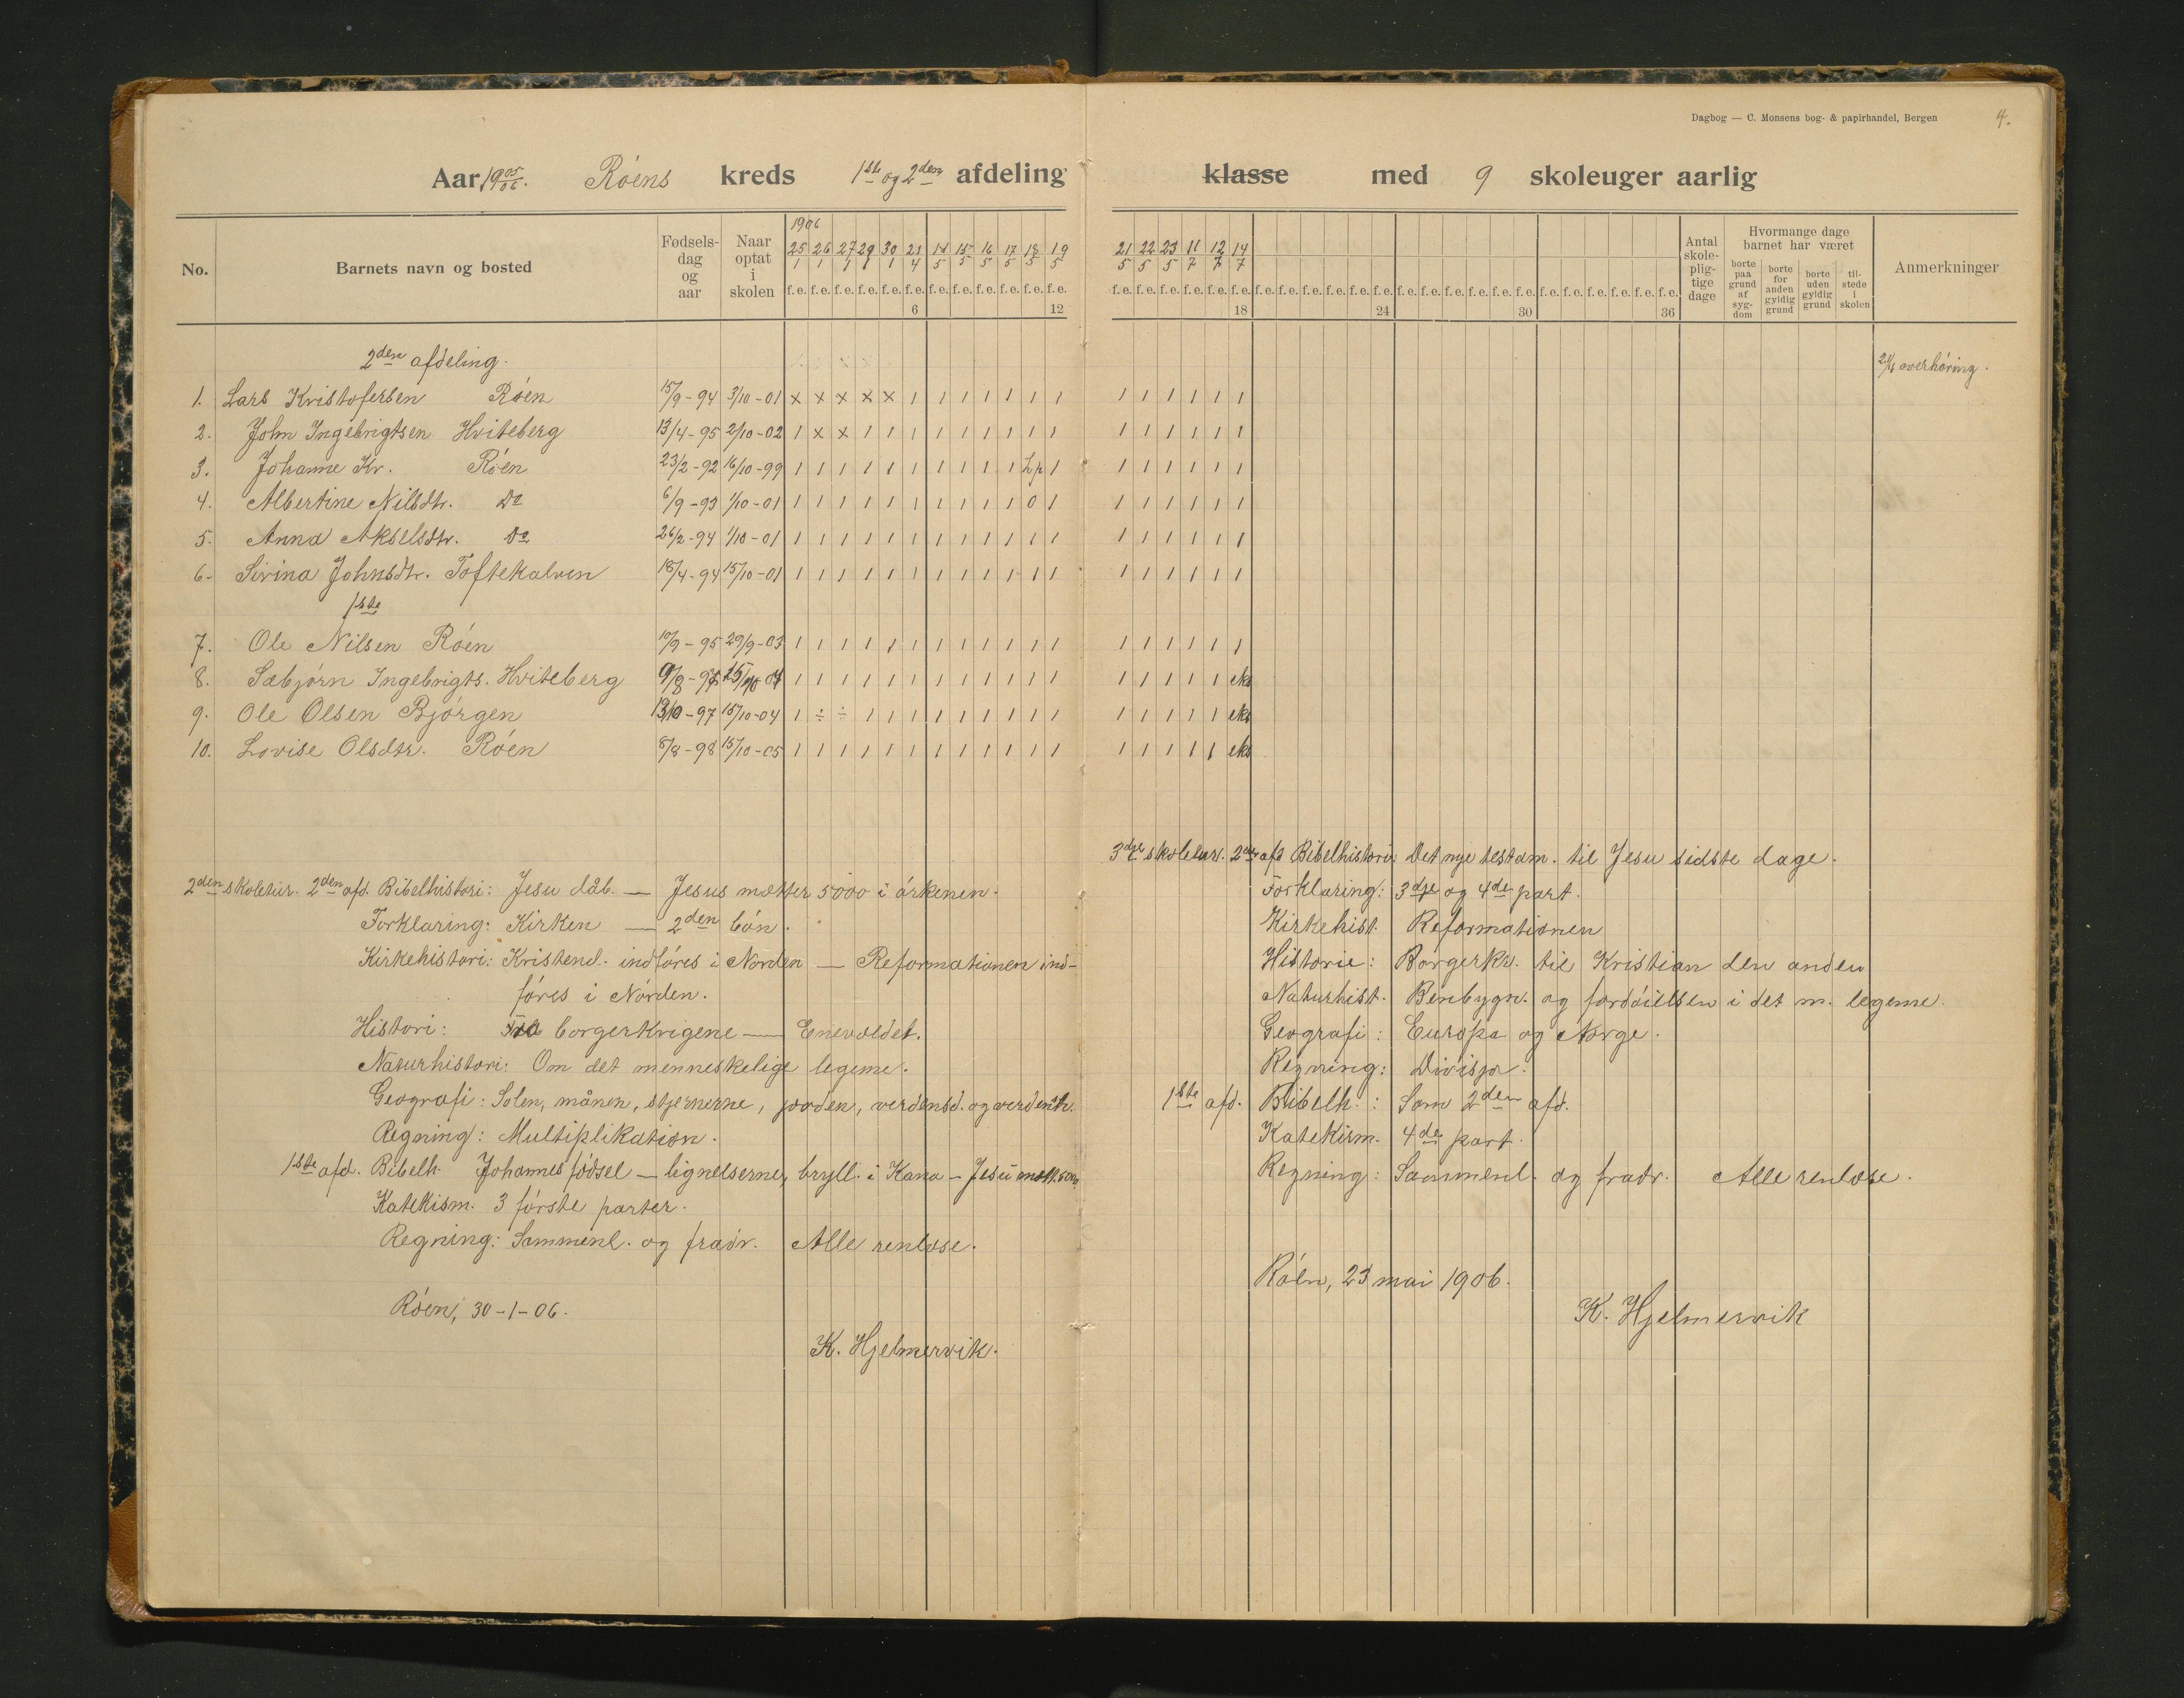 Dagbog — C. Monsens bog- & papirhandel, Bergen 4.
Aar 1905/06. Röens kreds 1ste og 2den afdeling klasse med 9 skoleuger aarlig
No. Barnets navn og bosted Fødselsdag og aar Naar optat i skolen 1906
25/1 26/1 27/1 29/1 30/1 21/4 14/5 15/5 16/5 17/5 18/5 19/5 21/5 22/5 23/5 11/7 12/7 14/7
f.e. f.e. f.e. f.e. f.e. f.e. f.e. f.e. f.e. f.e. f.e. f.e. f.e. f.e. f.e. f.e. f.e. f.e. f.e. f.e. f.e. f.e. f.e. f.e. f.e. f.e. f.e. f.e. f.e. f.e. f.e. f.e. f.e. f.e. f.e. f.e.
6 12 18 24 30 36
Antal skolepligtige dage
Hvormange dage barnet har været
borte paa grund af sygdom
borte for anden gyldig grund
borte uden gyldig grund
tilstede i skolen
Anmerkninger
2den afdeling. 21/4 overhöring.
1. Lars Kristofersen Röen 15/9-94 3/10-01 × × × × × 1 1 1 1 1 1 1 1 1 1 1 1 1
2. John Ingebrigtsen Hviteberg 13/4-95 2/10-02 1 × × 1 1 1 1 1 1 1 1 1 1 1 1 1 1 1
3. Johanne Kr. Röen 23/2-92 16/10-99 1 1 1 1 1 1 1 1 1 1 Lp 1 1 1 1 1 1 1
4. Albertine Nilsdtr. Do 6/9-93 1/10-01 1 1 1 1 1 1 1 1 1 1 0 1 1 1 1 1 1 1
5. Anna Akselsdtr. Do 26/2-94 1/10-01 1 1 1 1 1 1 1 1 1 1 1 1 1 1 1 1 1 1
6. Sirina Johnsdtr. Toftekalven 18/4-94 15/10-01 1 1 1 1 1 1 1 1 1 1 1 1 1 1 1 1 1 1
1ste
7. Ole Nilsen Röen 10/9-95 29/9-03 1 1 1 1 1 1 1 1 1 1 1 1 1 1 1 1 1 1
8. Sæbjörn Ingebrigts. Hviteberg 15/10 04 1 1 1 1 1 1 1 1 1 1 1 1 1 1 1 1 1 eks
9. Ole Olsen Bjørgen 13/10-97 15/10-04 1 ÷ ÷ 1 1 1 1 1 1 1 1 1 1 1 1 1 1 eks
10. Lovise Olsdtr. Röen 8/8-98 15/10-05 1 1 1 1 1 1 1 1 1 1 1 1 1 1 1 1 1 eks
2den skoletur. 2den afd. Bibelhistori: Jesu dåb. — Jesus mætter 5000 i örkenen.
Forklaring: Kirken — 2den bön.
Kirkehistori: Kristend. indföres i Norden — Reformationen ind-
föres i Norden.
Histori: Fra borgerkrigene — Enevældet.
Naturhistori: Om det menneskelige legeme.
Geografi: Solen, månen, stjernerne, jorden, verdensd. og verdensh.
Regning: Multiplikation.
1ste afd. Bibelh. Johannes födsel — lignelserne, bryll. i Kana — Jesu mætt. 5000
Katekism. 3 förste parter.
Regning: Sammenl. og fradr. Alle renløse.
Röen, 30-1-06.
K. Hjelmervik.
3dje skoletur. 2den afd Bibelhistori: Det nye testam. til Jesu sidste dage.
Forklaring: 3dje og 4de part.
Kirkehist. Reformationen
Historie: Borgerkr. til Kristian den anden
Naturhist. Benbygn. og fordöielsen i det m. legeme.
Geografi: Europa og Norge.
Regning: Divisjon.
1ste afd. Bibelh.: Som 2den afd.
Katekism. 4de part.
Regning: Sammenl. og fradr. Alle renløse.
Röen, 23 mai 1906.
K. Hjelmervik